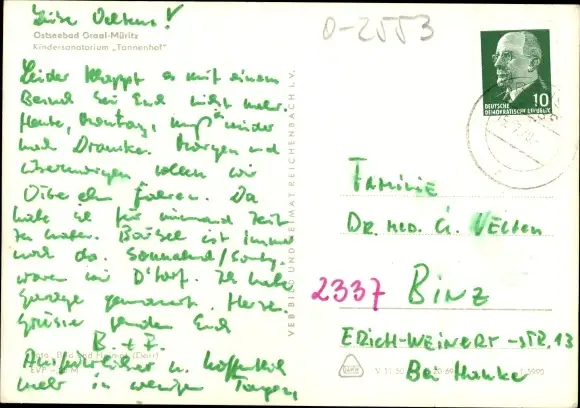 Liebe Oelkens!
Ostseebad Graal-Müritz
Kindersanatorium „Tannenhof"
Leider klappt es mit einem
Besuch bei Euch nicht mehr.
Heute, Montag, muß wieder
nach Dranske. Morgen und
übermorgen wollen wir
fahren. Da
habe ich für niemand Zeit
zu haben. ist immer
noch da. Sonnabend/Sonntg.
waren in D'dorf. Ich habe
Garage gemauert. Herzl.
Grüsse senden Euch
B. + F.
Foto: Bild und Heimat (Darr)
Ausführlicher u. hoffentlich
EVP
mehr in wenigen Tagen,
VEB BILD UND HEIMAT REICHENBACH I. V.
0-2553
10
DEUTSCHE
DEMOKRATISCHE REPUBLIK
FAMILIE
DR. MED. Ü. VELTEN
2337 BINZ
ERICH-WEINERT-STR. 13
Bei Hanke
V 11 50